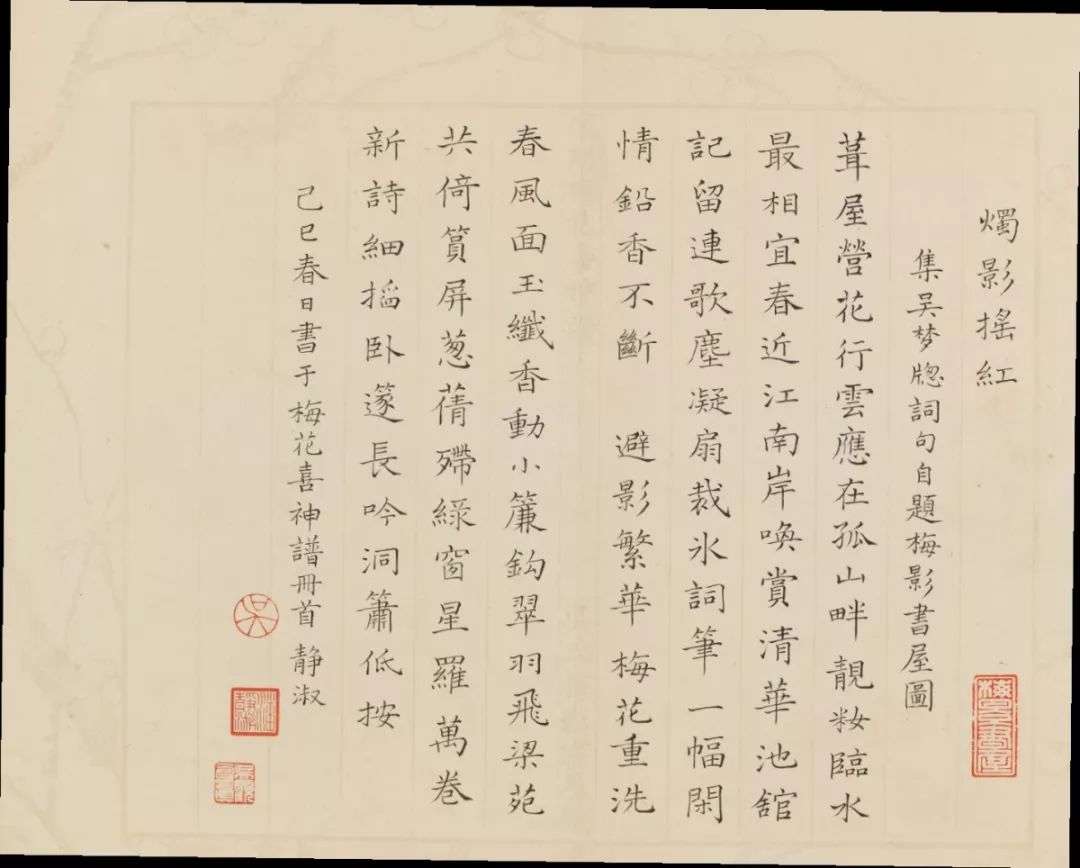 燭影搖紅
集吴梦牕詞句自題梅影書屋圖
葺屋營花行雲應在孤山畔靚妝臨水
最相宜春近江南岸喚賞清華池舘
記留連歌塵凝扇裁氷詞筆一幅閑
情鉛香不斷　避影繁華梅花重洗
春風面玉纖香動小簾鈎翠羽飛梁苑
共倚篔屏葱蒨殢綠窗星羅萬卷
新詩細搯卧邃長吟洞簫低按
己巳春日書于梅花喜神譜冊首 靜淑
梅景書屋
吴
潘靜淑